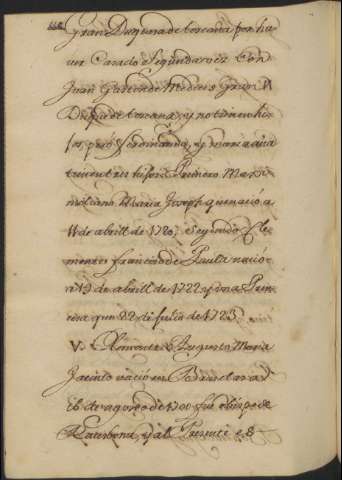 Gran Duquesa de toscana por ha
uer Casado Segunda vez Con
Juan Gaston de Medicis Gran
Duque de toscana, y no tiene hi
jos, pero Ferdinanda, y maria Ana
tubieron tres hijos Primero Maxi
miliano Maria Joseph que nació a
11 de abrill de 1720, segundo Cle
mente francisco de Paula nació
a 19 de abrill de 1722 y una Prin
cesa que 22 di Julio de 1723
V. Clemente Augusto Maria
Jacinto nació en Bruselas a
16 de agosto de 1700 fue obispo de
Ratisbona, y al Presente es